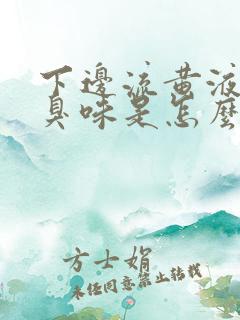 下邊流黃液
臭味是怎麽
方士娟
未经同意禁止转载